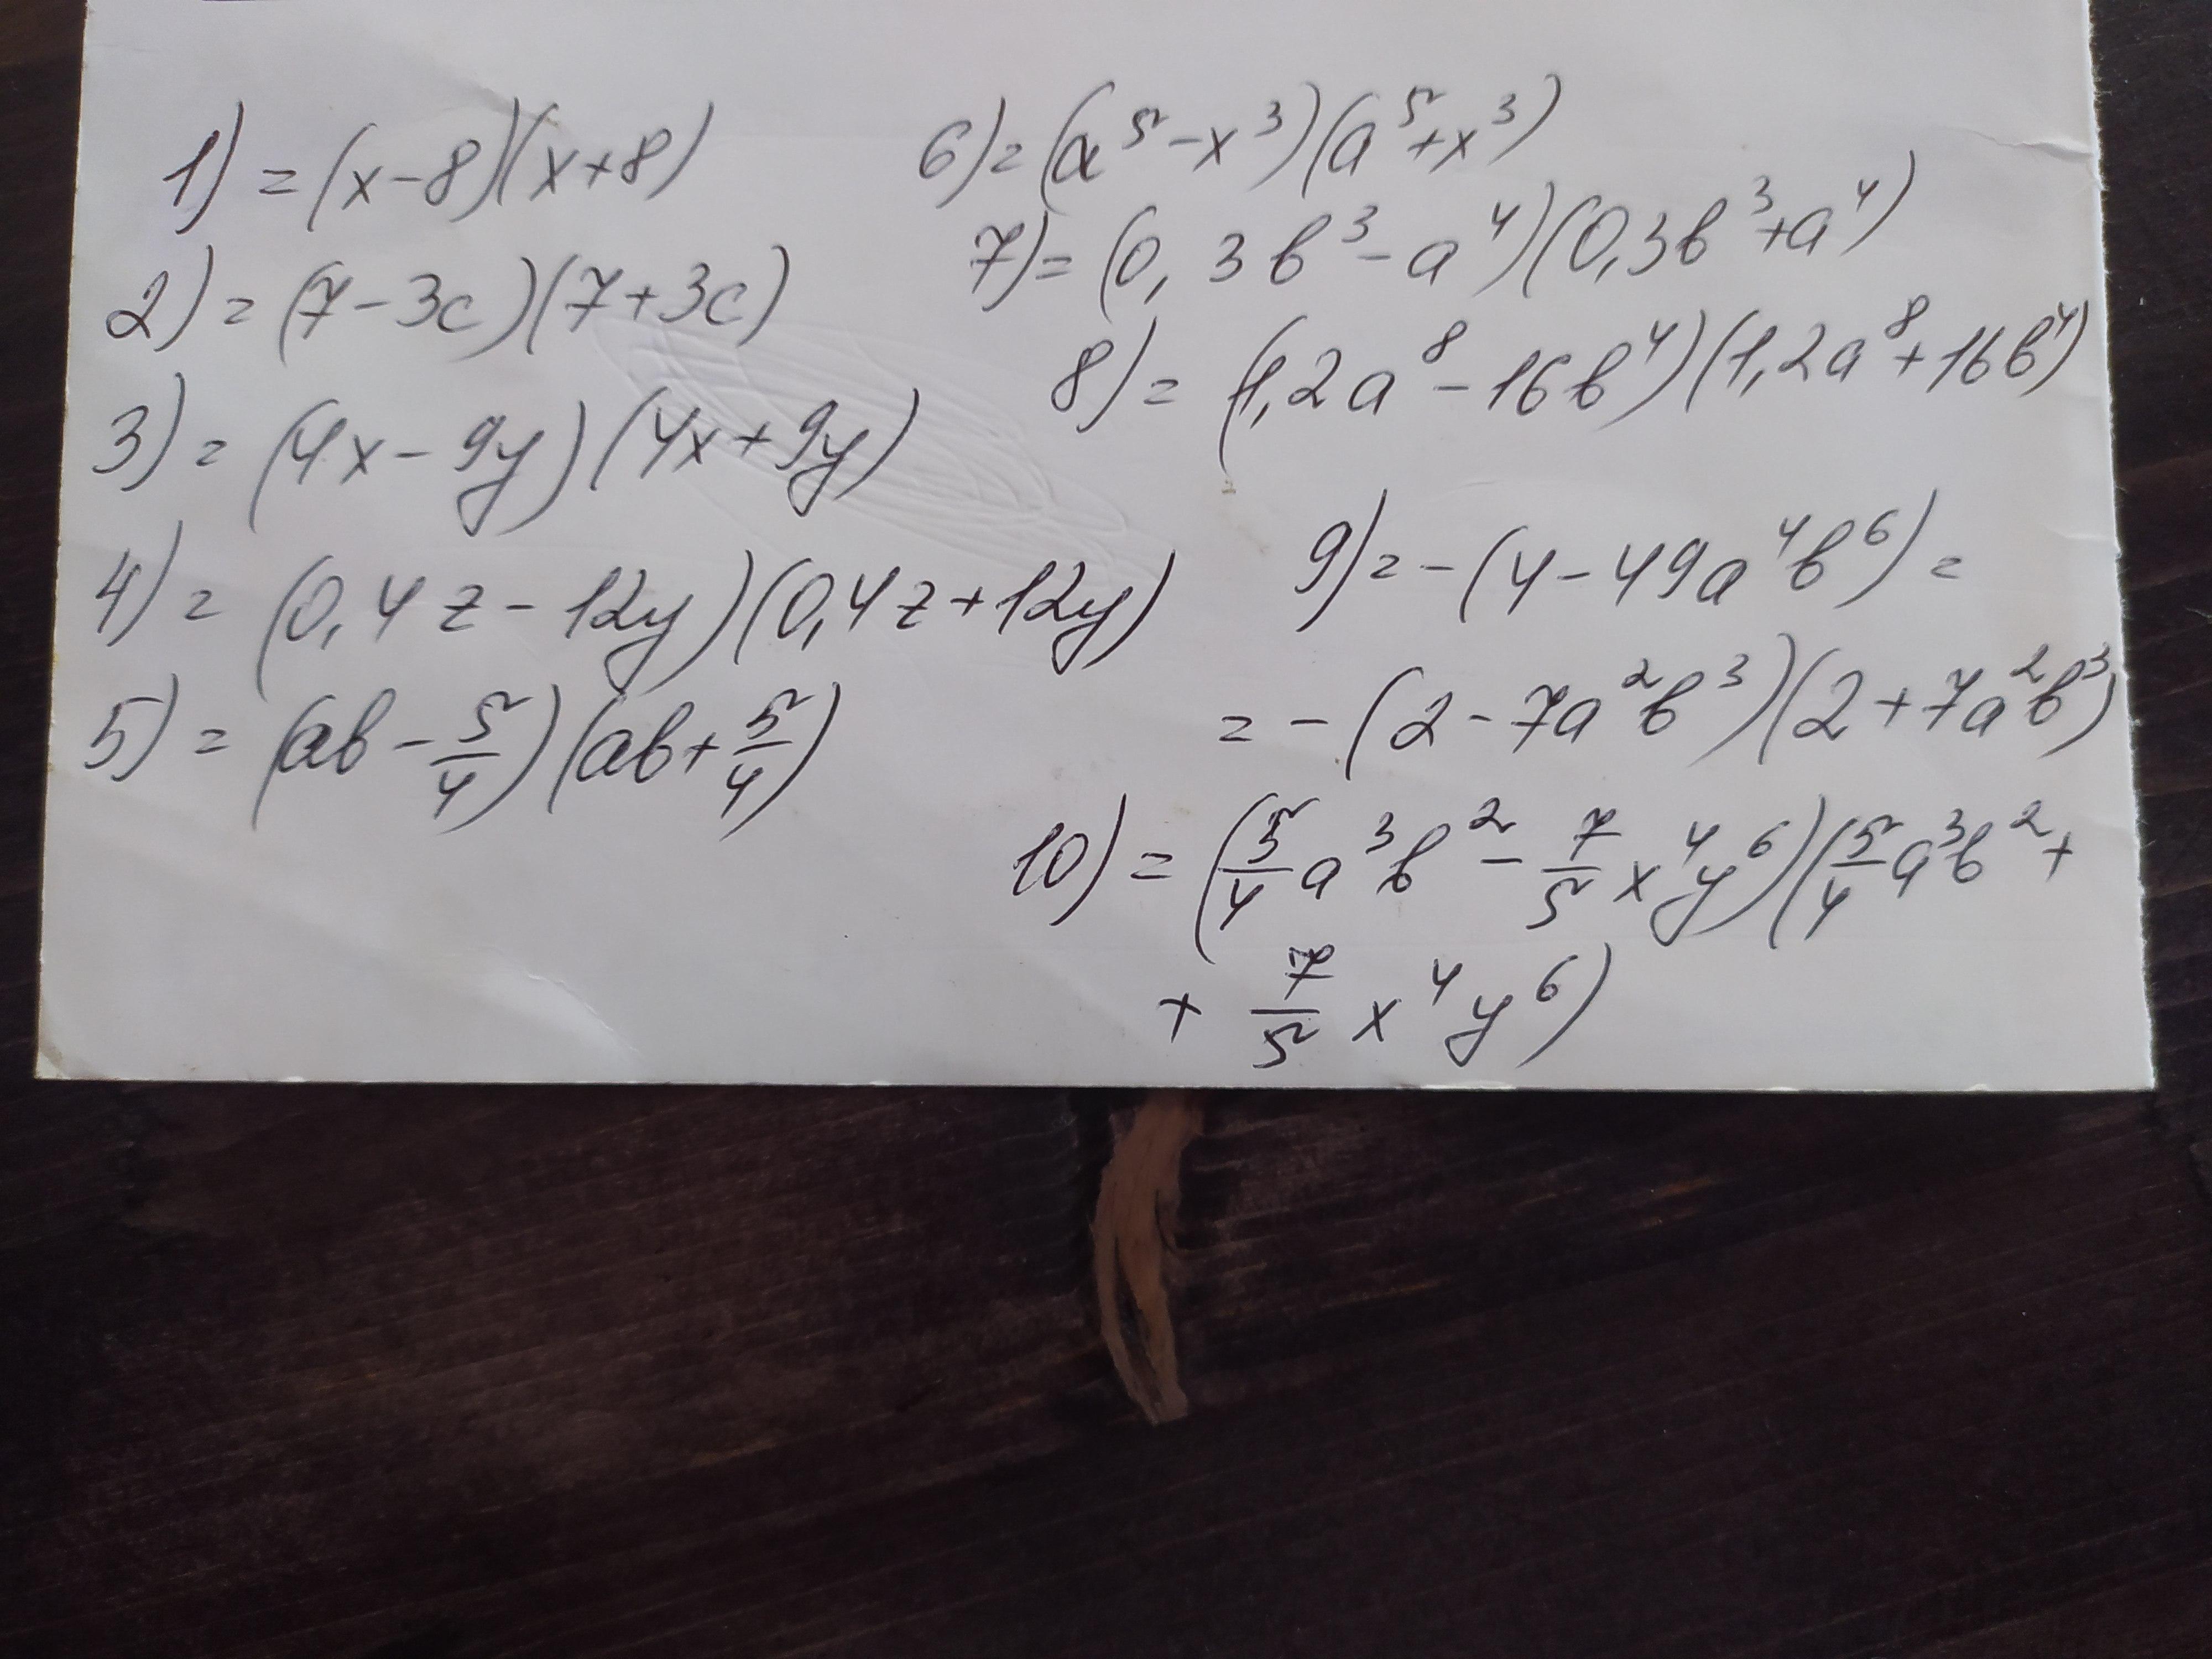 1) = (x-8)(x+8)
2) = (7-3c)(7+3c)
3) = (4x-9y)(4x+9y)
4) = (0,4z-12y)(0,4z+12y)
5) = (ab-5/4)(ab+5/4)
6) = (a⁵-x³)(a⁵+x³)
7) = (0,3b³-a⁴)(0,3b³+a⁴)
8) = (1,2a⁸-16b⁴)(1,2a⁸+16b⁴)
9) = -(4-49a⁴b⁶) =
= -(2-7a²b³)(2+7a²b³)
10) = (5/4a³b²-7/5x⁴y⁶)(5/4a³b²+
+ 7/5x⁴y⁶)